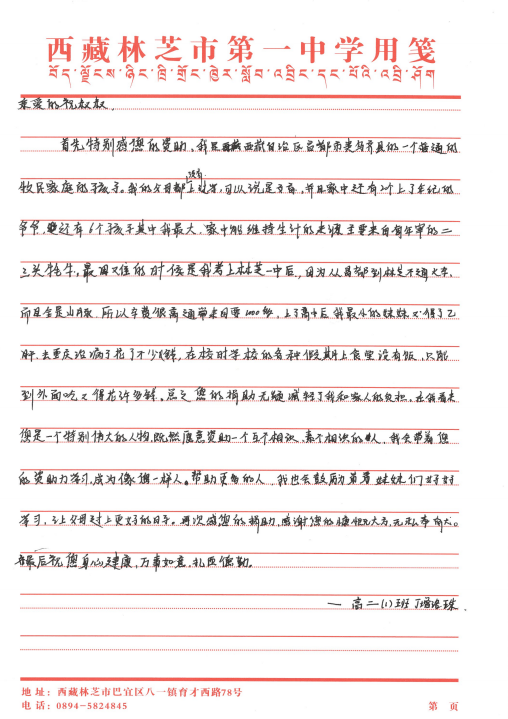 西藏林芝市第一中学用笺
亲爱的祝叔叔,
首先特别感您的资助、我是西藏自治区昌都市类乌齐县的一个普通的
牧民家庭的孩子。我的父母都没有上过学,可以说是文盲,并且家中还有2个上了年纪的
爷爷,还有6个孩子其中我最大、家中能维持生计的来源主要来自每年宰的二
三头牦牛。最困难的时候是我考上林芝一中后,因为从昌都到林芝不通火车、
而且全是山路,所以车费很高通常来回要1000多,上了高中后我最小的妹妹又得了乙
肝,去重庆治病了花了不少钱,在校时学校的各种假期上食堂没有饭,只能
到外面吃又得花许多钱。总之您的捐助无疑减轻了我和家人的负担,在我看来
您是一个特别伟大的人物,既然愿意资助一个互不相识、素不相识的人,我会带着您
的资助力学习,成为像您一样人。帮助更多的人,我也会鼓励弟弟妹妹们好好
学习,让父母过上更好的日子。再次感您的捐助,感谢您的慷慨大方,无私奉献。
最后祝您身心健康,万事如意,扎西德勒。
一 高二(1)班 丁增洛珠.
地址:西藏林芝市巴宜区八一镇育才西路78号
电话:0894-5824845 第 页